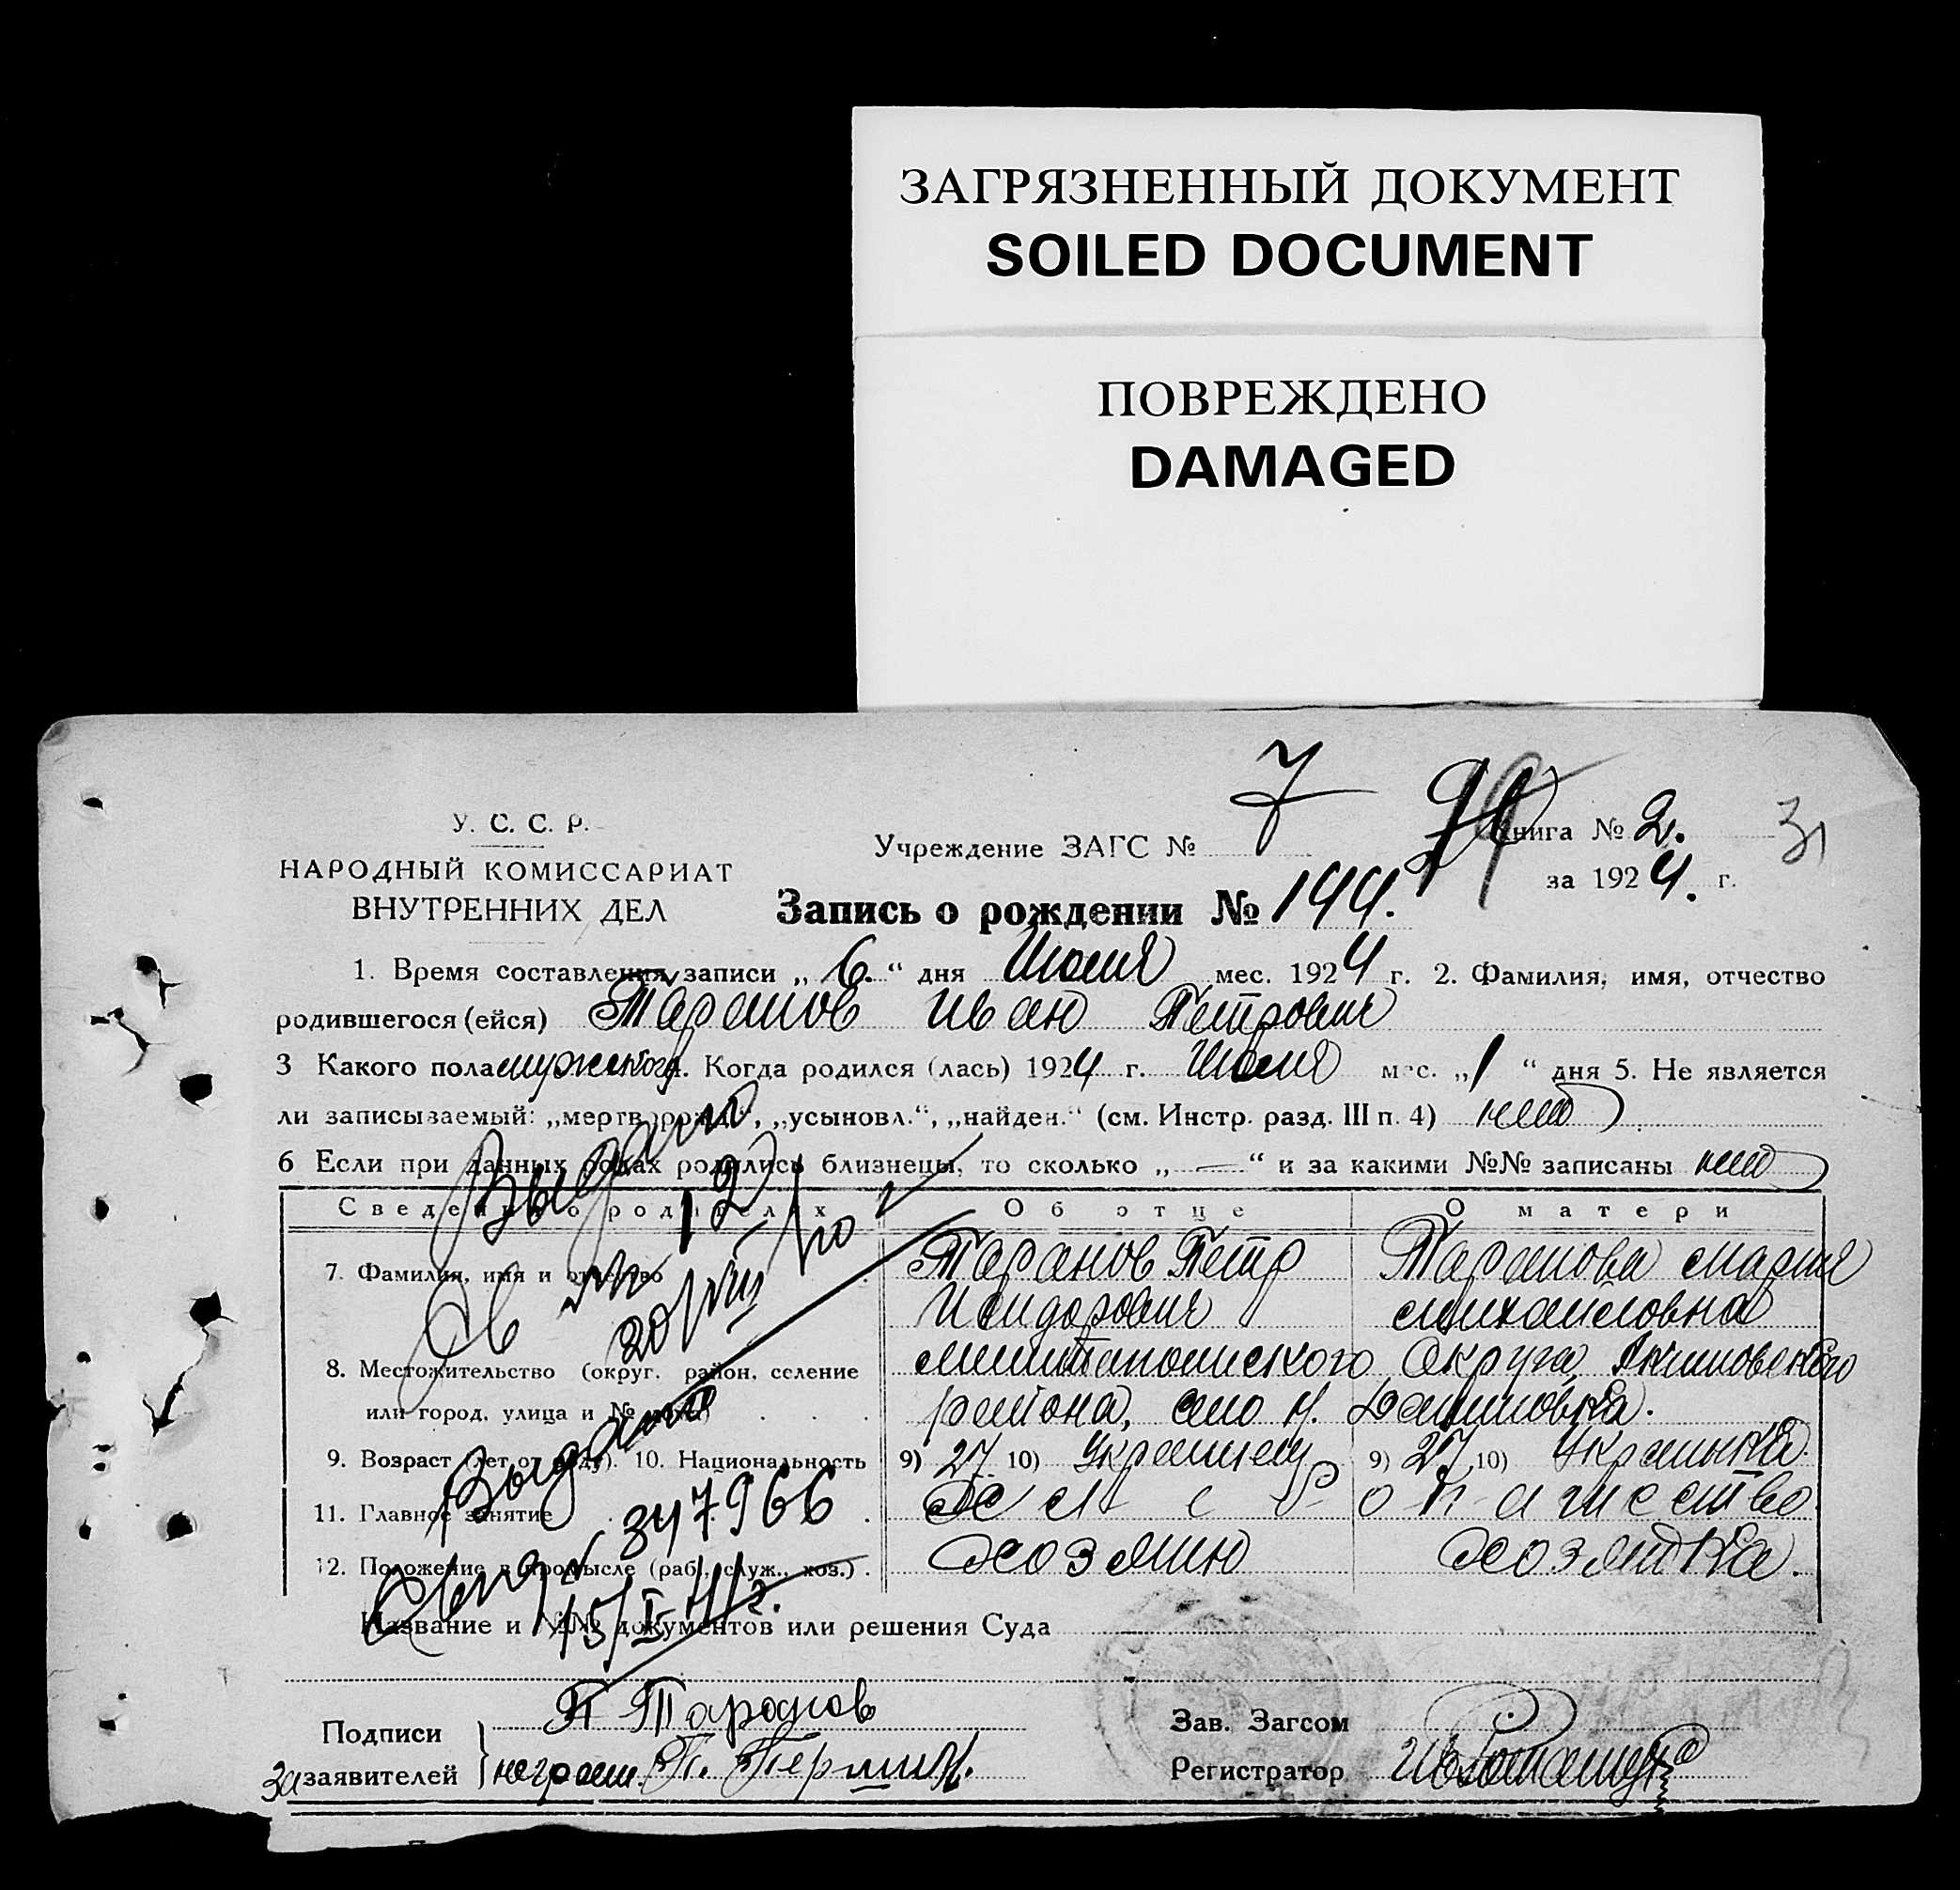 ЗАГРЯЗНЕННЫЙ ДОКУМЕНТ
SOILED DOCUMENT
ПОВРЕЖДЕНО
DAMAGED
У. С. С. Р.
НАРОДНЫЙ КОМИССАРИАТ
ВНУТРЕННИХ ДЕЛ
Учреждение ЗАГС № 7
Книга № 2.
31
за 1924. г.
Запись о рождении № 144.
1. Время составления записи „ 6. “ дня Июля мес. 1924 г. 2. Фамилия, имя, отчество
родившегося (ейся) Таранов Иван Петрович
3 Какого пола мужского. Когда родился (лась) 1924 г. Июля мес. „ 1 “ дня 5. Не является
ли записываемый: „мертворожд.“, „усыновл.“, „найден.“ (см. Инстр. разд. III п. 4) нет
6 Если при данных родах родились близнецы, то сколько „ — “ и за какими №№ записаны нет
Сведения о родителях Об отце О матери
7. Фамилия, имя и отчество Таранов Петр Таранова Мария
Исидорович Михайловна
8. Местожительство (округ. район, селение Мелитопольского Округа, Акимовского
или город, улица и № дома) района, село Н. Даниловка.
9. Возраст (лет от роду). 10. Национальность 9) 27. 10) Украинец 9) 27 10) Украинка.
11. Главное занятие Хлебопашество
12. Положение в промысле (раб., служ., хоз.) . Хозяин Хозяйка.
Название и №№ документов или решения Суда
Выдано
Св
12
20/VIII
Выдано
347966
15/I-41г.
Подписи П Таранов
За заявителей неграм. П.
Зав. Загсом
Регистратор